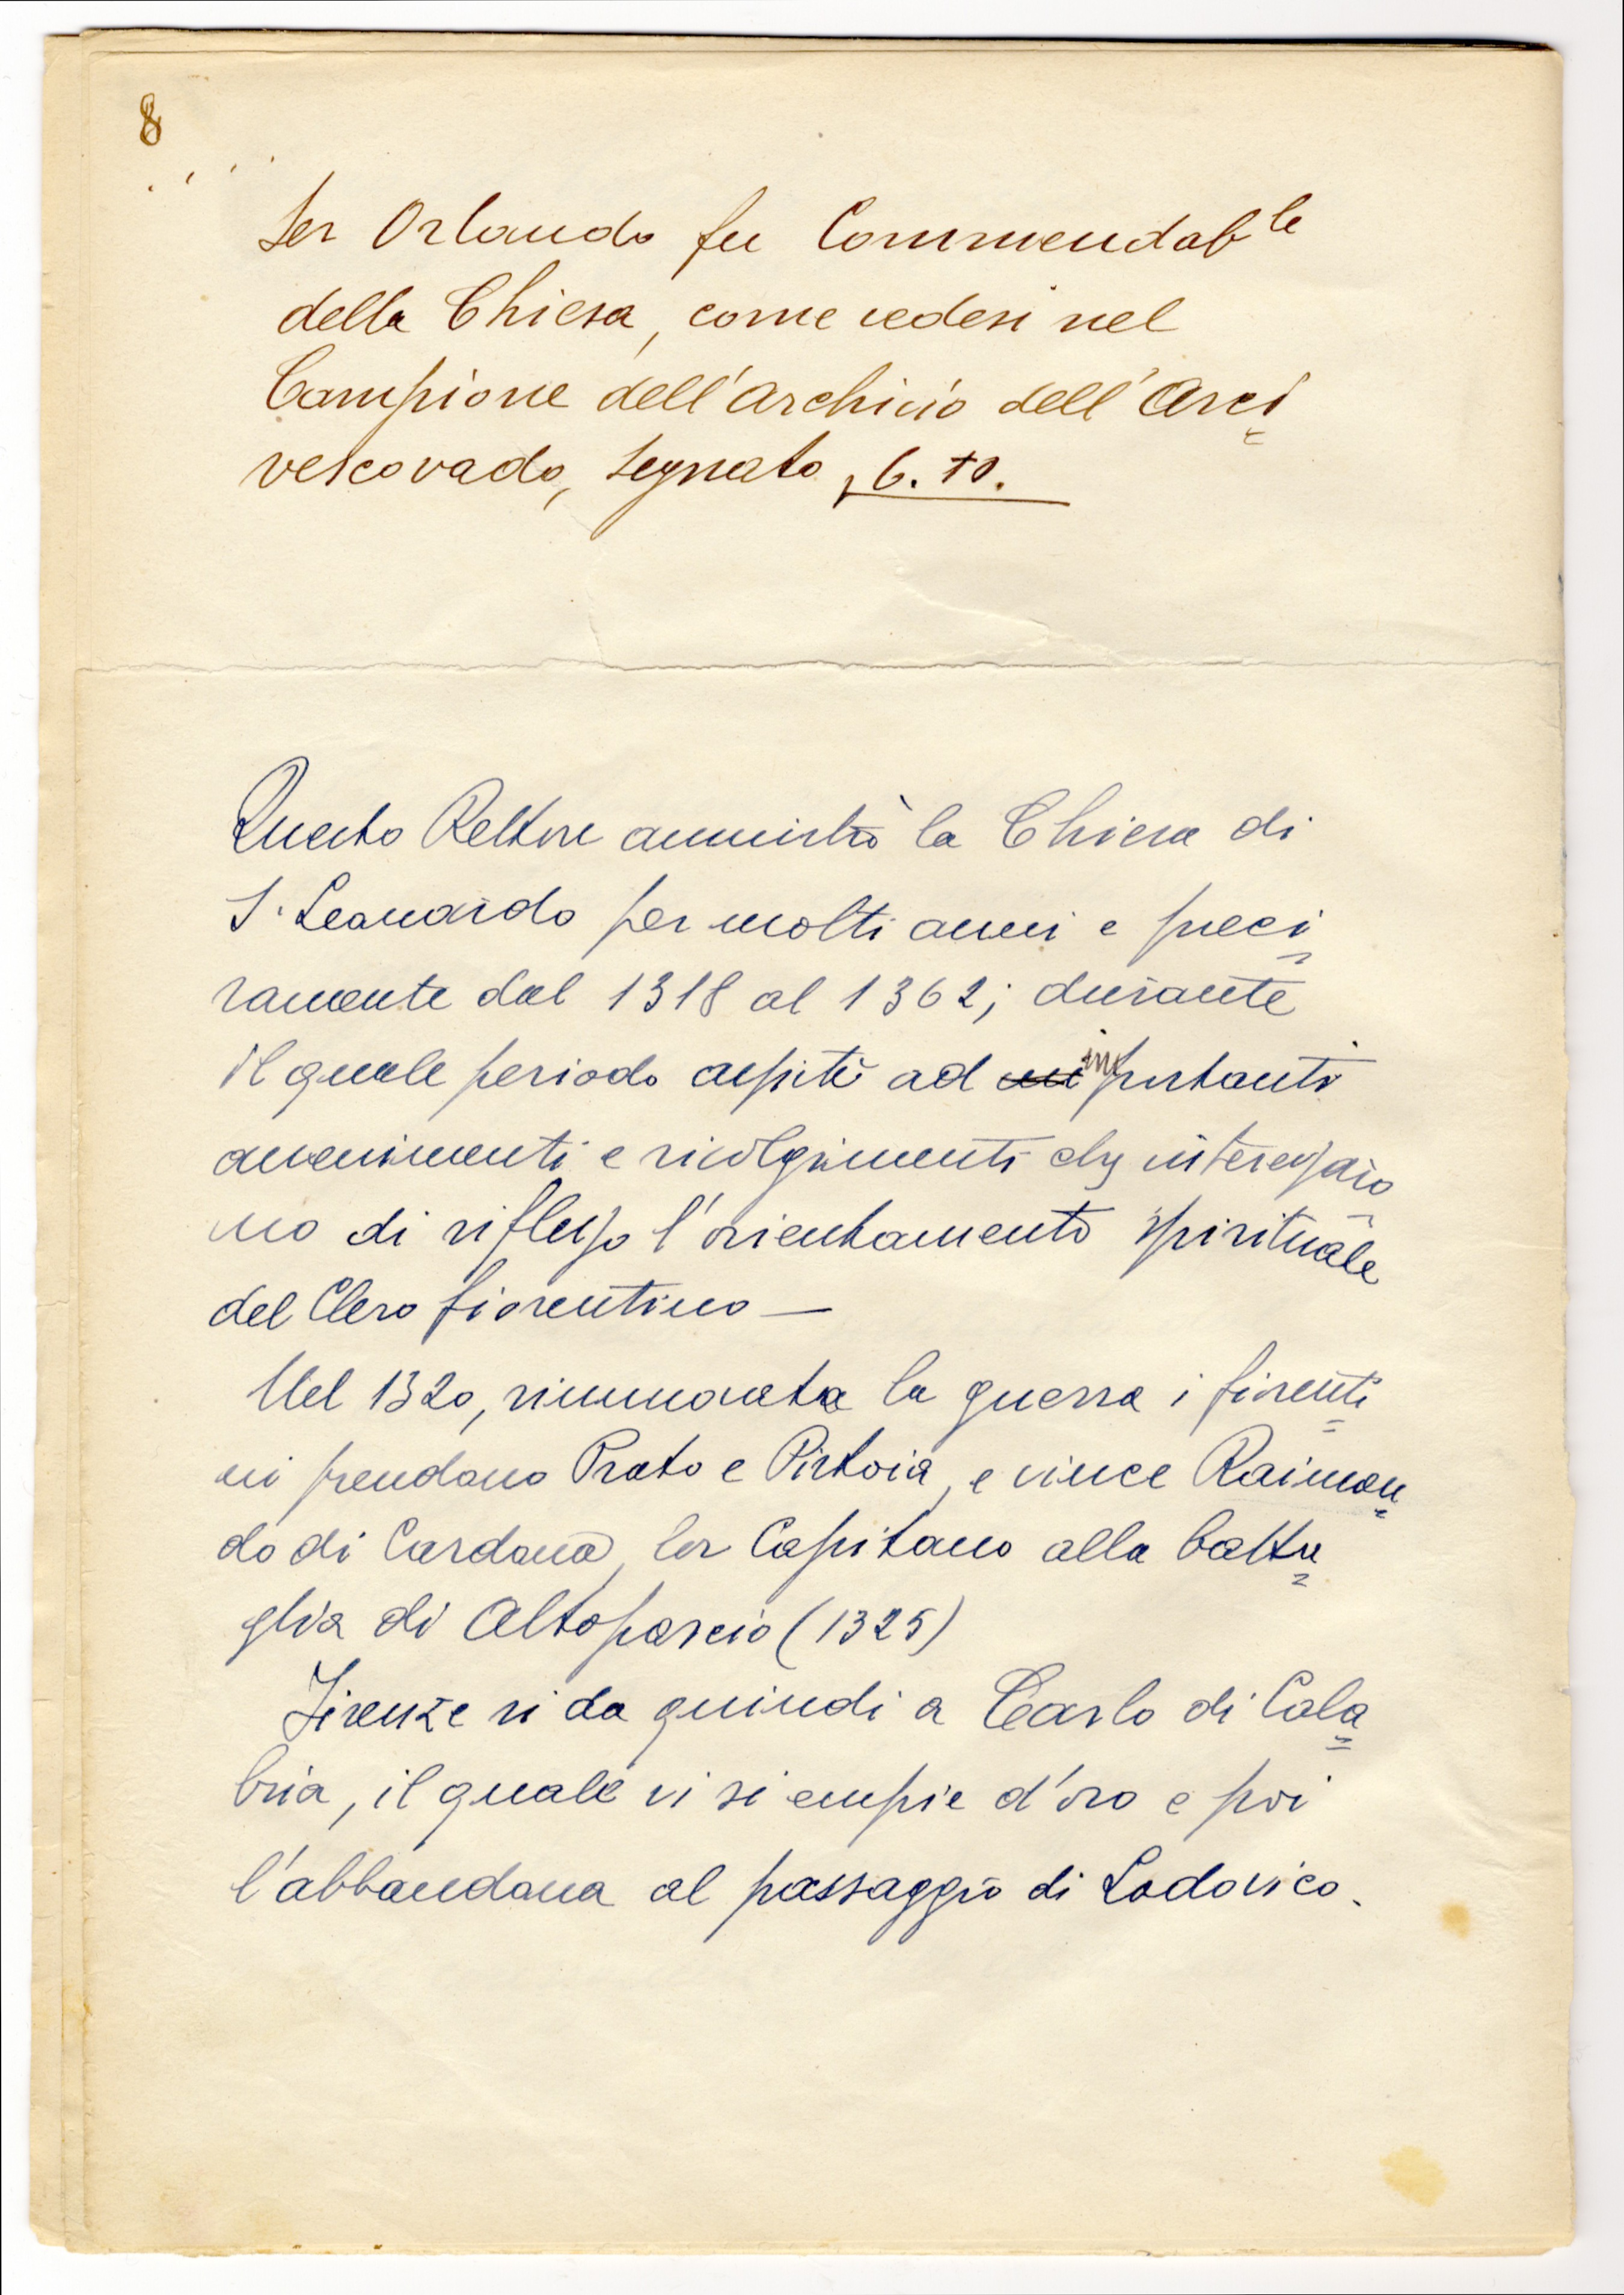 8
Ser Orlando fu Commendab^le
della Chiesa, come vedesi nel
Campione dell'Archivio dell'Arci=
vescovado, segnato, 6. 10.
Questo Rettore amministrò la Chiesa di
S. Leonardo per molti anni e preci=
samente dal 1318 al 1362; durante
il quale periodo aspitè ad importanti
avvenimenti e rivolgimenti che interessaro=
no di riflesso l'orientamento spirituale
del Clero fiorentino —
Nel 1320, rinnovata la guerra i fiorenti=
ni prendono Prato e Pistoia, e vince Raimon=
do di Cardona, lor Capitano alla batta=
glia di Altopascio (1325)
Firenze si da quindi a Carlo di Cala=
bria, il quale vi si empie d'oro e poi
l'abbandona al passaggio di Lodovico.